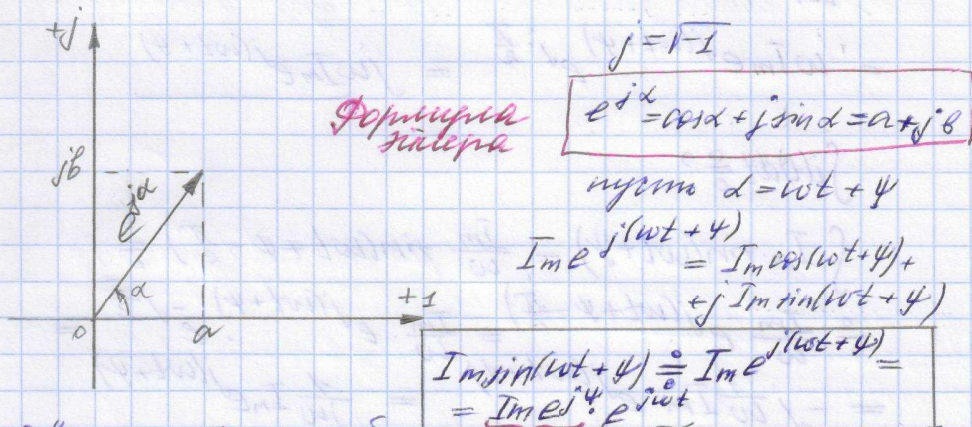 +j
j = √-1
Формула
Эйлера
e^{jα} = cosα + j sinα = a + jb
jb
пусть α = ωt + ψ
e^{jα}
I_m e^{j(ωt + ψ)} = I_m cos(ωt + ψ) +
+ j I_m sin(ωt + ψ)
α
+1
0
a
I_m sin(ωt + ψ) ≓ I_m e^{j(ωt + ψ)} =
= I_m e^{jψ} · e^{jωt}